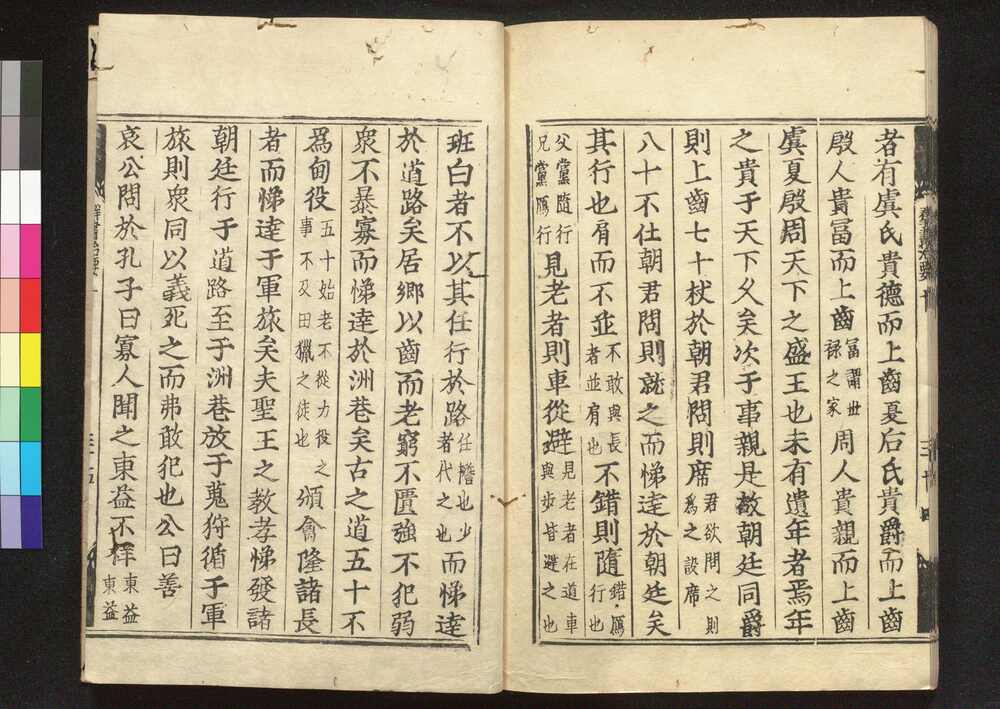 者有虞氏貴德而上齒夏后氏貴爵而上齒
殷人貴冨而上齒冨謂世祿之家周人貴親而上齒
虞夏殷周天下之盛王也未有遺年者焉年
之貴于天下久矣次于事親是故朝廷同爵
則上齒七十杖於朝君問則席君欲問之則爲之設席
八十不仕朝君問則就之而悌達於朝廷矣
其行也肩而不並不敢與長者並肩也不錯則隨錯鴈行也
父黨隨行兄黨鴈行見老者則車從避見老者在道車與步皆避之也
班白者不以其任行於路任擔也少者代之也而悌達
於道路矣居鄉以齒而老窮不匱強不犯弱
衆不暴寡而悌達於洲巷矣古之道五十不
爲甸役五十始老不從力役之事不及田獵之徒也頒禽隆諸長
者而悌達于軍旅矣夫聖王之教孝悌發諸
朝廷行于道路至于洲巷放于蒐狩循于軍
旅則衆同以義死之而弗敢犯也公曰善
哀公問於孔子曰寡人聞之東益不祥東益
東益